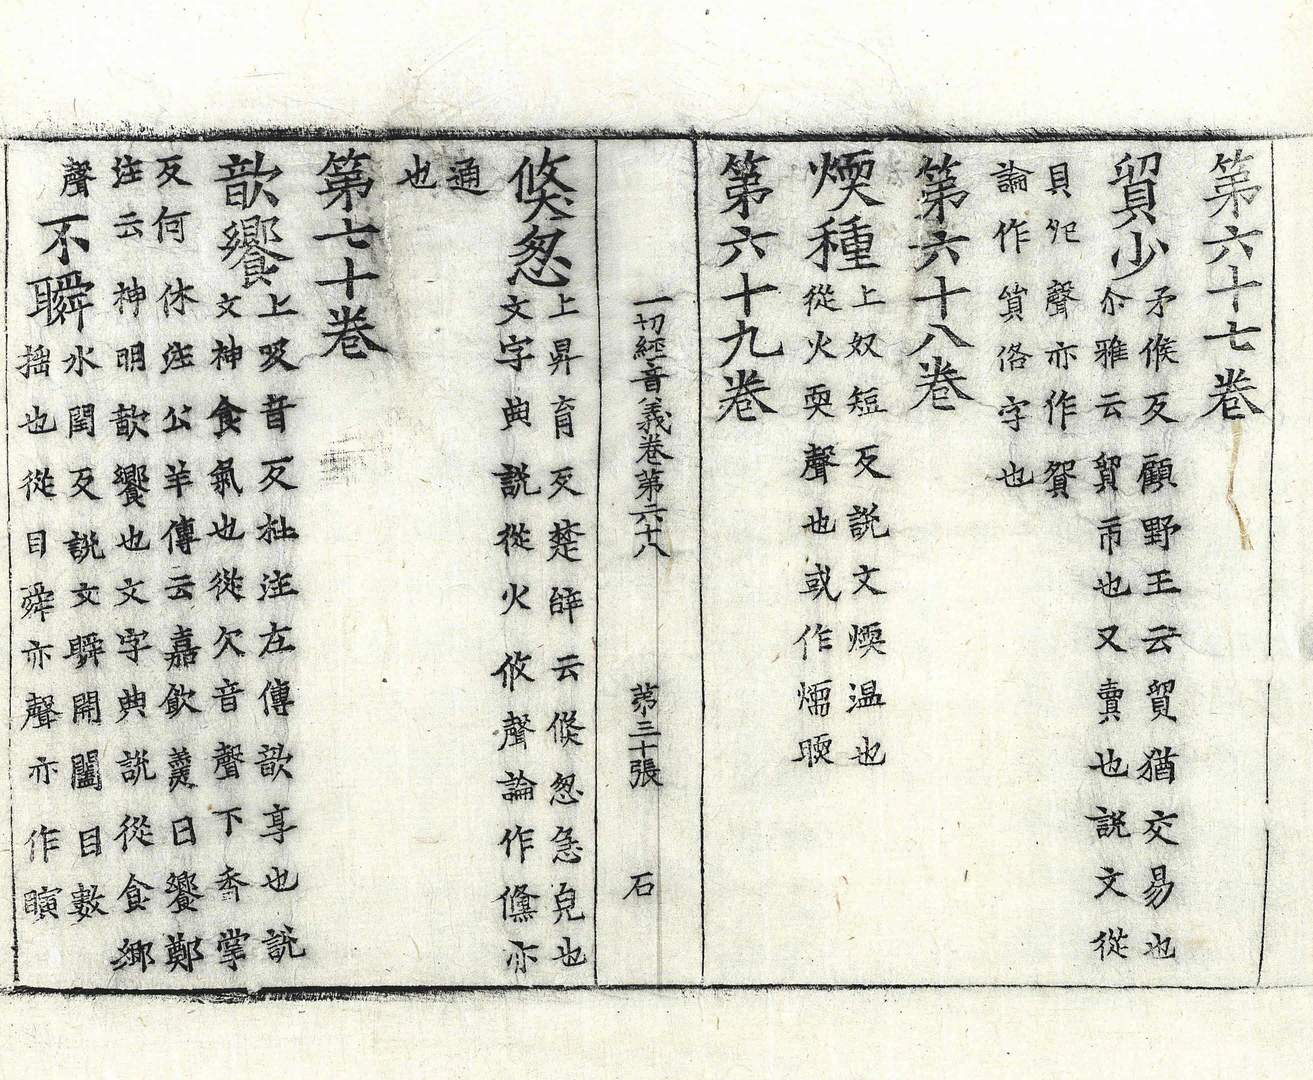 第六十七卷
貿少
矛候反顧野王云貿猶交易也
尒雅云貿市也又賣也說文從
貝戼聲亦作貿
論作貿俗字也
第六十八卷
煗種
上奴短反說文煗温也
從火耎聲也或作煖㬉
第六十九卷
一切經音義卷第六十八 第三十張 石
倏忽
上昇育反楚辭云倏忽急皃也
文字典說從火攸聲論作儵亦
通
也
第七十卷
歆饗
上吸音反杜注左傳歆享也說
文神食氣也從欠音聲下香掌
反何休注公羊傳云嘉飲羹曰饗鄭
注云神明歆饗也文字典說從食鄉
聲
不瞬
水閏反說文瞬開闔目數
揺也從目舜亦聲亦作瞚